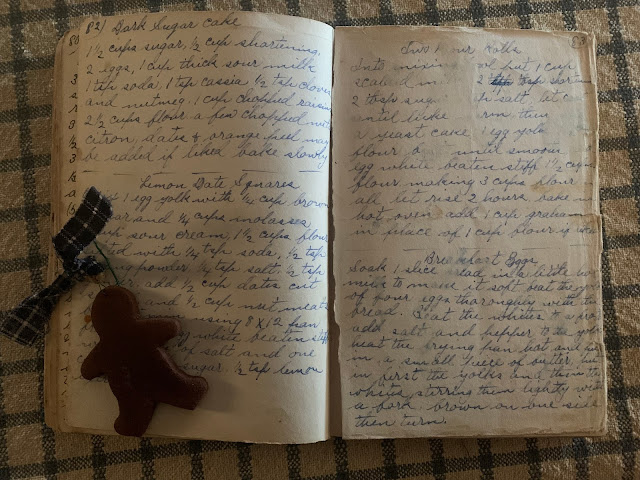 82) Dark Sugar Cake
1½ cups sugar, ½ cup shortening,
2 eggs, 1 cup thick sour milk
1 tsp soda, 1 tsp cassia ½ tsp cloves
and nutmeg. 1 cup chopped raisins
2½ cups flour a few chopped nuts
citron, dates & orange peel may
be added if liked bake slowly
Lemon Date Squares
1 egg yolk with ¼ cup brown
sugar and ¼ cup molasses
sour cream, 1½ cups flour
with ¼ tsp soda, ½ tsp
powder ¼ tsp salt. ½ tsp
add ½ cup dates cut
and ½ cup nut meats
using 8 x 12 pan
white beaten stiff
of salt and one
sugar. ½ tsp lemon
Two Hour Rolls
Into mixing bowl put 1 cup
scalded 2 tbsp
2 tbsp salt, let
until luke warm, then
a yeast cake 1 egg yolk
flour until smooth
egg white beaten stiff 1½ cups
flour making 3 cups flour
let rise 2 hours bake in
hot oven add 1 cup graham
in place of 1 cup flour if
Breakfast Eggs
Soak 1 slice bread in a little hot
milk to make it soft beat the yolks
of four eggs thoroughly with the
bread. Beat the whites to a froth
add salt and pepper to the yolks
heat the frying pan hot and
in a small piece of butter,
in first the yolks and then the
whites stirring them lightly with
a fork, brown on one side
then turn.